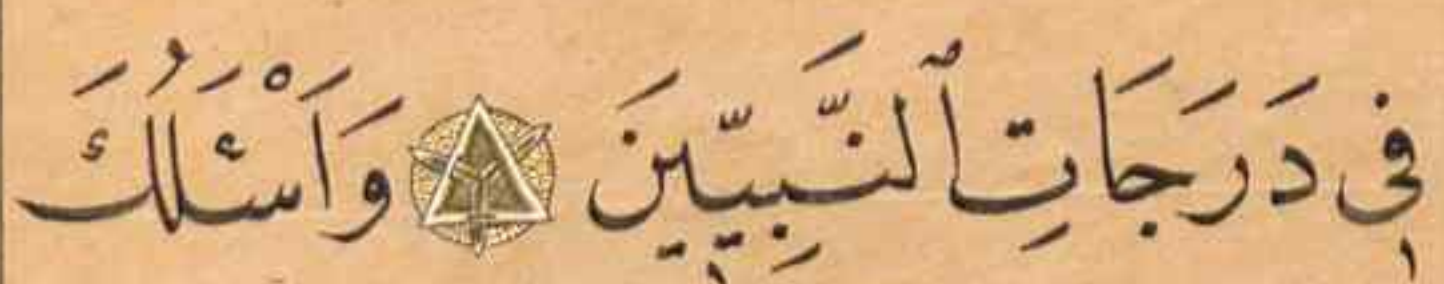 فِي دَرَجَاتِ ٱلنَّبِيِّينَ وَاَسْئَلُكَ